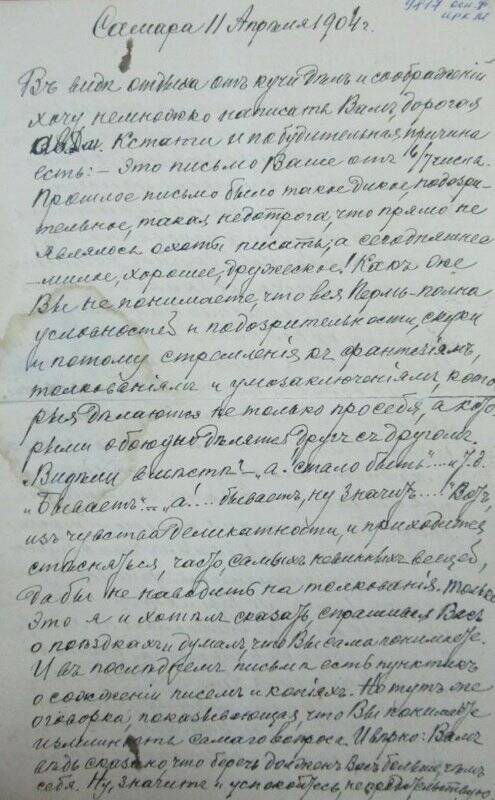 Самара 11 Апрѣля 1904 г.
Въ видѣ отдыха отъ кучи дѣлъ и соображеній
хочу немножко написать Вамъ, дорогая
Кстати и побудительная причина
есть: – Это письмо Ваше отъ 6/7 числа.
Прошлое письмо было такое дикое, подозри-
тельное, такая недотрога, что прямо не
являлось охоты писать, а сегодняшнее
– милое, хорошее, дружеское! Какъ же
Вы не понимаете, что вся Пермь – полна
условностей и подозрительности, скуки
и потому стремленія къ фантазіямъ,
толкованіямъ и умозаключеніямъ, кото-
рыя дѣлаются не только про себя, а кото-
рыми обоюдно дѣлятся другъ съ другомъ.
"Видѣли вмѣстѣ" – "а! стало быть".... и т.д.
"Бываетъ" – "а!... бываетъ, ну значитъ....!" Вотъ,
изъ чувства деликатности, и приходится
стѣсняться, часто, самыхъ невинныхъ вещей,
да бы не наводить на толкованія. Только
это я и хотѣлъ сказать, спрашивая Васъ
о поѣздкахъ и думалъ, что Вы сама понимаете.
И въ послѣднемъ письмѣ есть пунктикъ
о сожженіи писемъ и копіяхъ. Но тутъ же
оговорка, показывающая, что Вы понимаете
излишность самаго вопроса. И вѣрно: Вамъ
вѣдь сказано что беречь долженъ Васъ больше, чѣмъ
себя. Ну, значитъ и успокойтесь